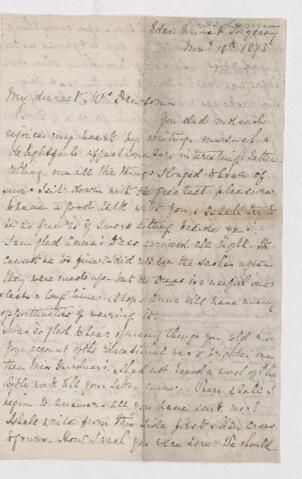 Nov. 18th 1873
My dearest Mrs. Denison
You did indeed
rejoice my heart by writing me such a
delightful, affectionate, interesting letter
telling me all the things I longed to hear of
since I sit down with the greatest pleasure
to have a good talk with you, I shall try to
be as free as if I were sitting beside you.
I am glad Anna's Dress arrived all right. It
cannot be too fine. I did not see the Sashes after
they were made up but the Dress is a useful one
lasts a long time. I hope Anna will have many
opportunities of wearing it.
I was so glad to hear of many things you told me
Your account of the Educational was a brighter one
than Miss Gardiner's. I had not heard a word of the
work till your letter came. Where shall I
begin to answer all you have sent me?
I shall write from this side first & then cross
it over. How I wish you were here. We should